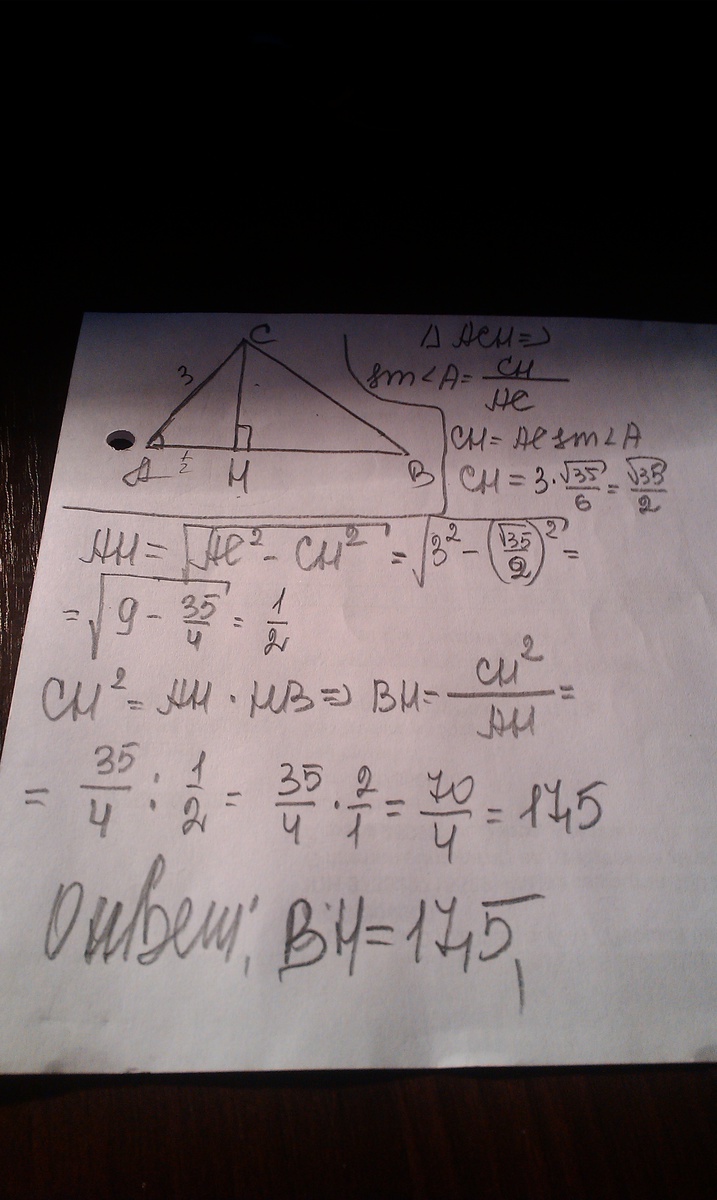 C
3
A
1/2
H
B
Δ ACH ⇒
sin∠A = CH/AC
CH = AC sin∠A
CH = 3 · √35/6 = √35/2
AH = √(AC² - CH²) = √(3² - (√35/2)²) =
= √(9 - 35/4) = 1/2
CH² = AH · HB ⇒ BH = CH²/AH =
= 35/4 : 1/2 = 35/4 · 2/1 = 70/4 = 17,5
Ответ: BH = 17,5